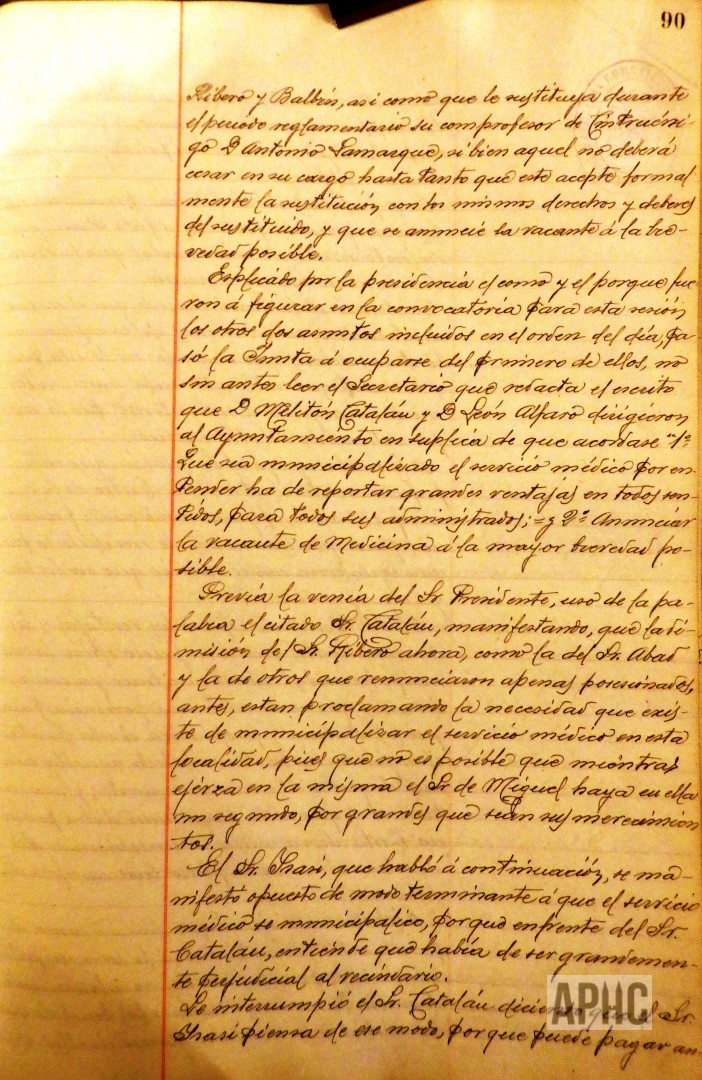 90
Ribero y Balbín, asi como que le sustituya durante
el periodo reglamentario su comprofesor de Cintruéni-
go D Antonio Lamarque, si bien aquel no deberá
cesar en su cargo hasta tanto que este acepte formal
mente la sustitución con los mismos derechos y deberes
del sustituido, y que se anuncie la vacante á la bre-
vedad posible.
Esplicado por la presidencia el como y el porque fue-
ron á figurar en la convocatoria para esta sesión
los otros dos asuntos incluidos en el orden del día, pa-
só la Junta á ocuparse del primero de ellos, no
sin antes leer el Secretario que redacta el escrito
que D Melitón Catalán y D León Alfaro dirigieron
al Ayuntamiento en suplica de que acordase "1º
Que sea municipalizado el servicio médico por en-
tender ha de reportar grandes ventajas en todos sen-
tidos, para todos sus administrados; = y 2º Anunciar
la vacante de Medicina á la mayor brevedad po-
sible.
Previa la venia del Sr Presidente, usó de la pa-
labra el citado Sr. Catalán, manifestando, que la di-
misión del Sr. Ribero ahora, como la del Sr. Abad
y la de otros que renunciaron apenas posesionados,
antes, estan proclamando la necesidad que exis-
te de municipalizar el servicio médico en esta
localidad, pues que no es posible que mientras
ejerza en la misma el Sr de Miguel haya en ella
un segundo, por grandes que sean sus merecimien
tos.
El Sr. Isasi, que habló á continuación, se ma-
nifestó opuesto de modo terminante á que el servicio
médico se municipalice, porque enfrente del Sr.
Catalán, entiende que había de ser grandemen-
te perjudicial al vecindario.
Le interrumpió el Sr. Catalán diciendo que el Sr.
Isasi piensa de ese modo, porque puede pagar an-
APHC